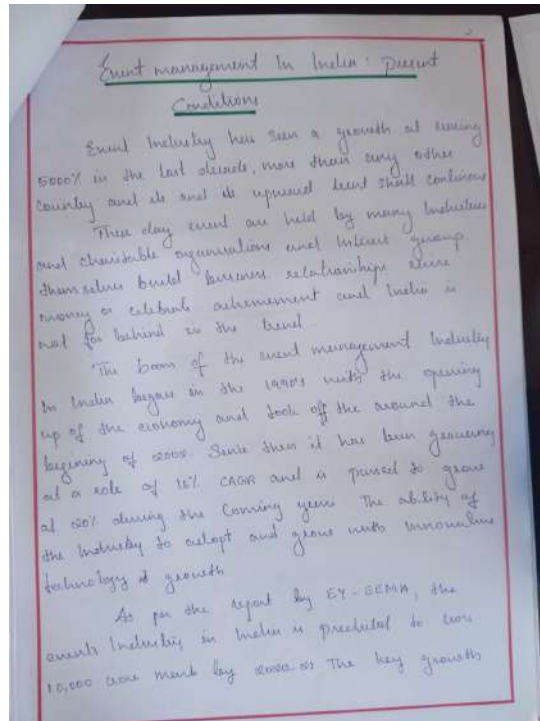 2
Event management In India: present
Conditions
Event Industry has seen a growth at
5000% in the last decade, more than any other
country and its and its upward trent shall continou
These day event are held by many Industries
and charitable organisations and Interest group
themselves build business relationships
money or celebrate achievement and India is
not far behind in the trend.
The boom of the event management Industry
In India began in the 1990's with the opening
up of the economy and took off the around the
begining of 2002. Senie then it has been growing
at a role of 16% CAGR and is to grow
at 20% during the Coming years The ability of
the Industry to adopt and grow with Innovative
technology growth
As per the report by EY-EEMA, the
events Industry in India is predicted to
10,000 crore by The key growth